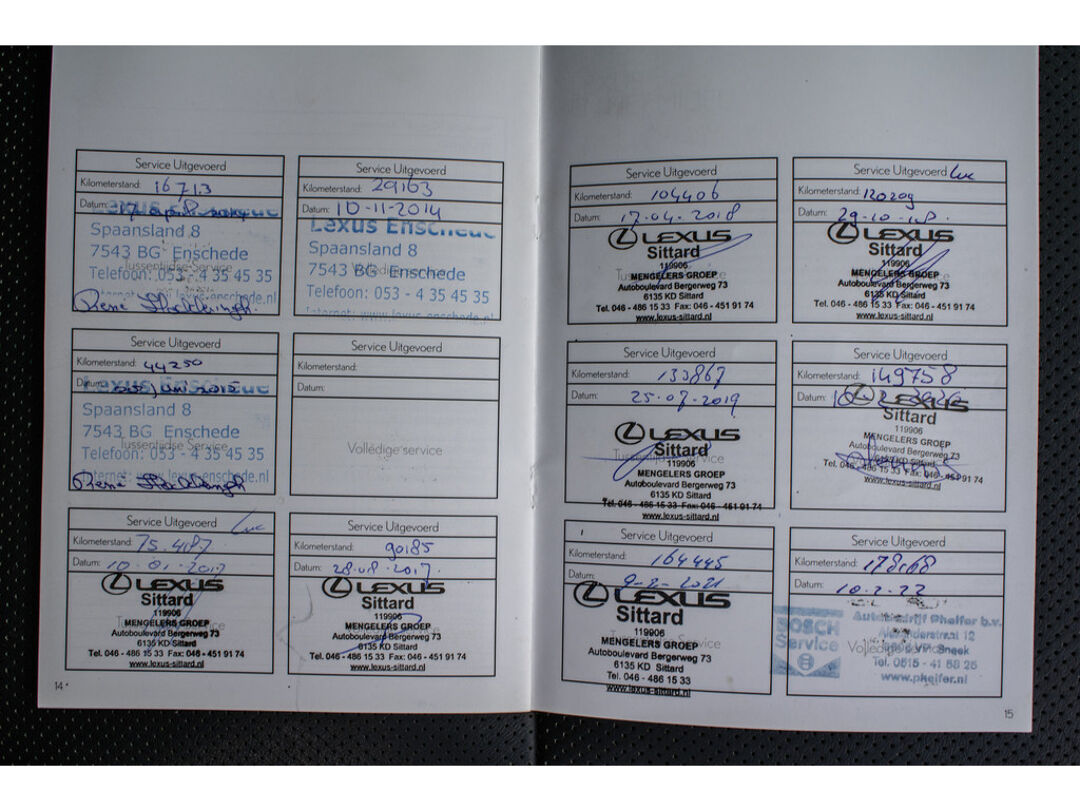 Service Uitgevoerd
Kilometerstand: 16713
Datum: 17 april
Spaansland 8
7543 BG Enschede
Tussentijdse Service
Telefoon: 053 - 4 35 45 35
Service Uitgevoerd
Kilometerstand: 29163
Datum: 10-11-2014
Lexus Enschede
Spaansland 8
7543 BG Enschede
Telefoon: 053 - 4 35 45 35
Internet: www.lexus-enschede.nl
Service Uitgevoerd
Kilometerstand: 44250
Datum: 2015
Lexus Enschede
Spaansland 8
7543 BG Enschede
Tussentijdse Service
Telefoon: 053 - 4 35 45 35
Internet: www.lexus-enschede.nl
Service Uitgevoerd
Kilometerstand:
Datum:
Volledige service
Service Uitgevoerd Luc
Kilometerstand: 75.487
Datum: 10-01-2017
LEXUS
Sittard
119906
MENGELERS GROEP
Autoboulevard Bergerweg 73
6135 KD Sittard
Tel. 046 - 486 15 33 Fax: 046 - 451 91 74
www.lexus-sittard.nl
Service Uitgevoerd
Kilometerstand: 90185
Datum: 28.08.2017.
LEXUS
Sittard
119906
MENGELERS GROEP
Autoboulevard Bergerweg 73
6135 KD Sittard
Tel. 046 - 486 15 33 Fax: 046 - 451 91 74
www.lexus-sittard.nl
14
Service Uitgevoerd
Kilometerstand: 104406
Datum: 17.04.2018
LEXUS
Sittard
119906
MENGELERS GROEP
Autoboulevard Bergerweg 73
6135 KD Sittard
Tel. 046 - 486 15 33 Fax: 046 - 451 91 74
www.lexus-sittard.nl
Service Uitgevoerd Luc
Kilometerstand: 120209
Datum: 29-10-18.
LEXUS
Sittard
119906
MENGELERS GROEP
Autoboulevard Bergerweg 73
6135 KD Sittard
Tel. 046 - 486 15 33 Fax: 046 - 451 91 74
www.lexus-sittard.nl
Service Uitgevoerd
Kilometerstand: 133867
Datum: 25.07.2019
LEXUS
Sittard
119906
MENGELERS GROEP
Autoboulevard Bergerweg 73
6135 KD Sittard
Tel. 046 - 486 15 33 Fax: 046 - 451 91 74
www.lexus-sittard.nl
Service Uitgevoerd
Kilometerstand: 149758
Datum:
LEXUS
Sittard
119906
MENGELERS GROEP
Autoboulevard Bergerweg 73
6135 KD Sittard
Tel. 046 - 486 15 33 Fax: 046 - 451 91 74
www.lexus-sittard.nl
Service Uitgevoerd
Kilometerstand: 164445
Datum: 9-2-2021
LEXUS
Sittard
119906
MENGELERS GROEP
Autoboulevard Bergerweg 73
6135 KD Sittard
Tel. 046 - 486 15 33
www.lexus-sittard.nl
Service Uitgevoerd
Kilometerstand: 178168
Datum: 10.2.22
BOSCH
Service
Autobedrijf Pheifer b.v.
Sneek
Tel. 0515 - 41 58 25
www.pheifer.nl
15